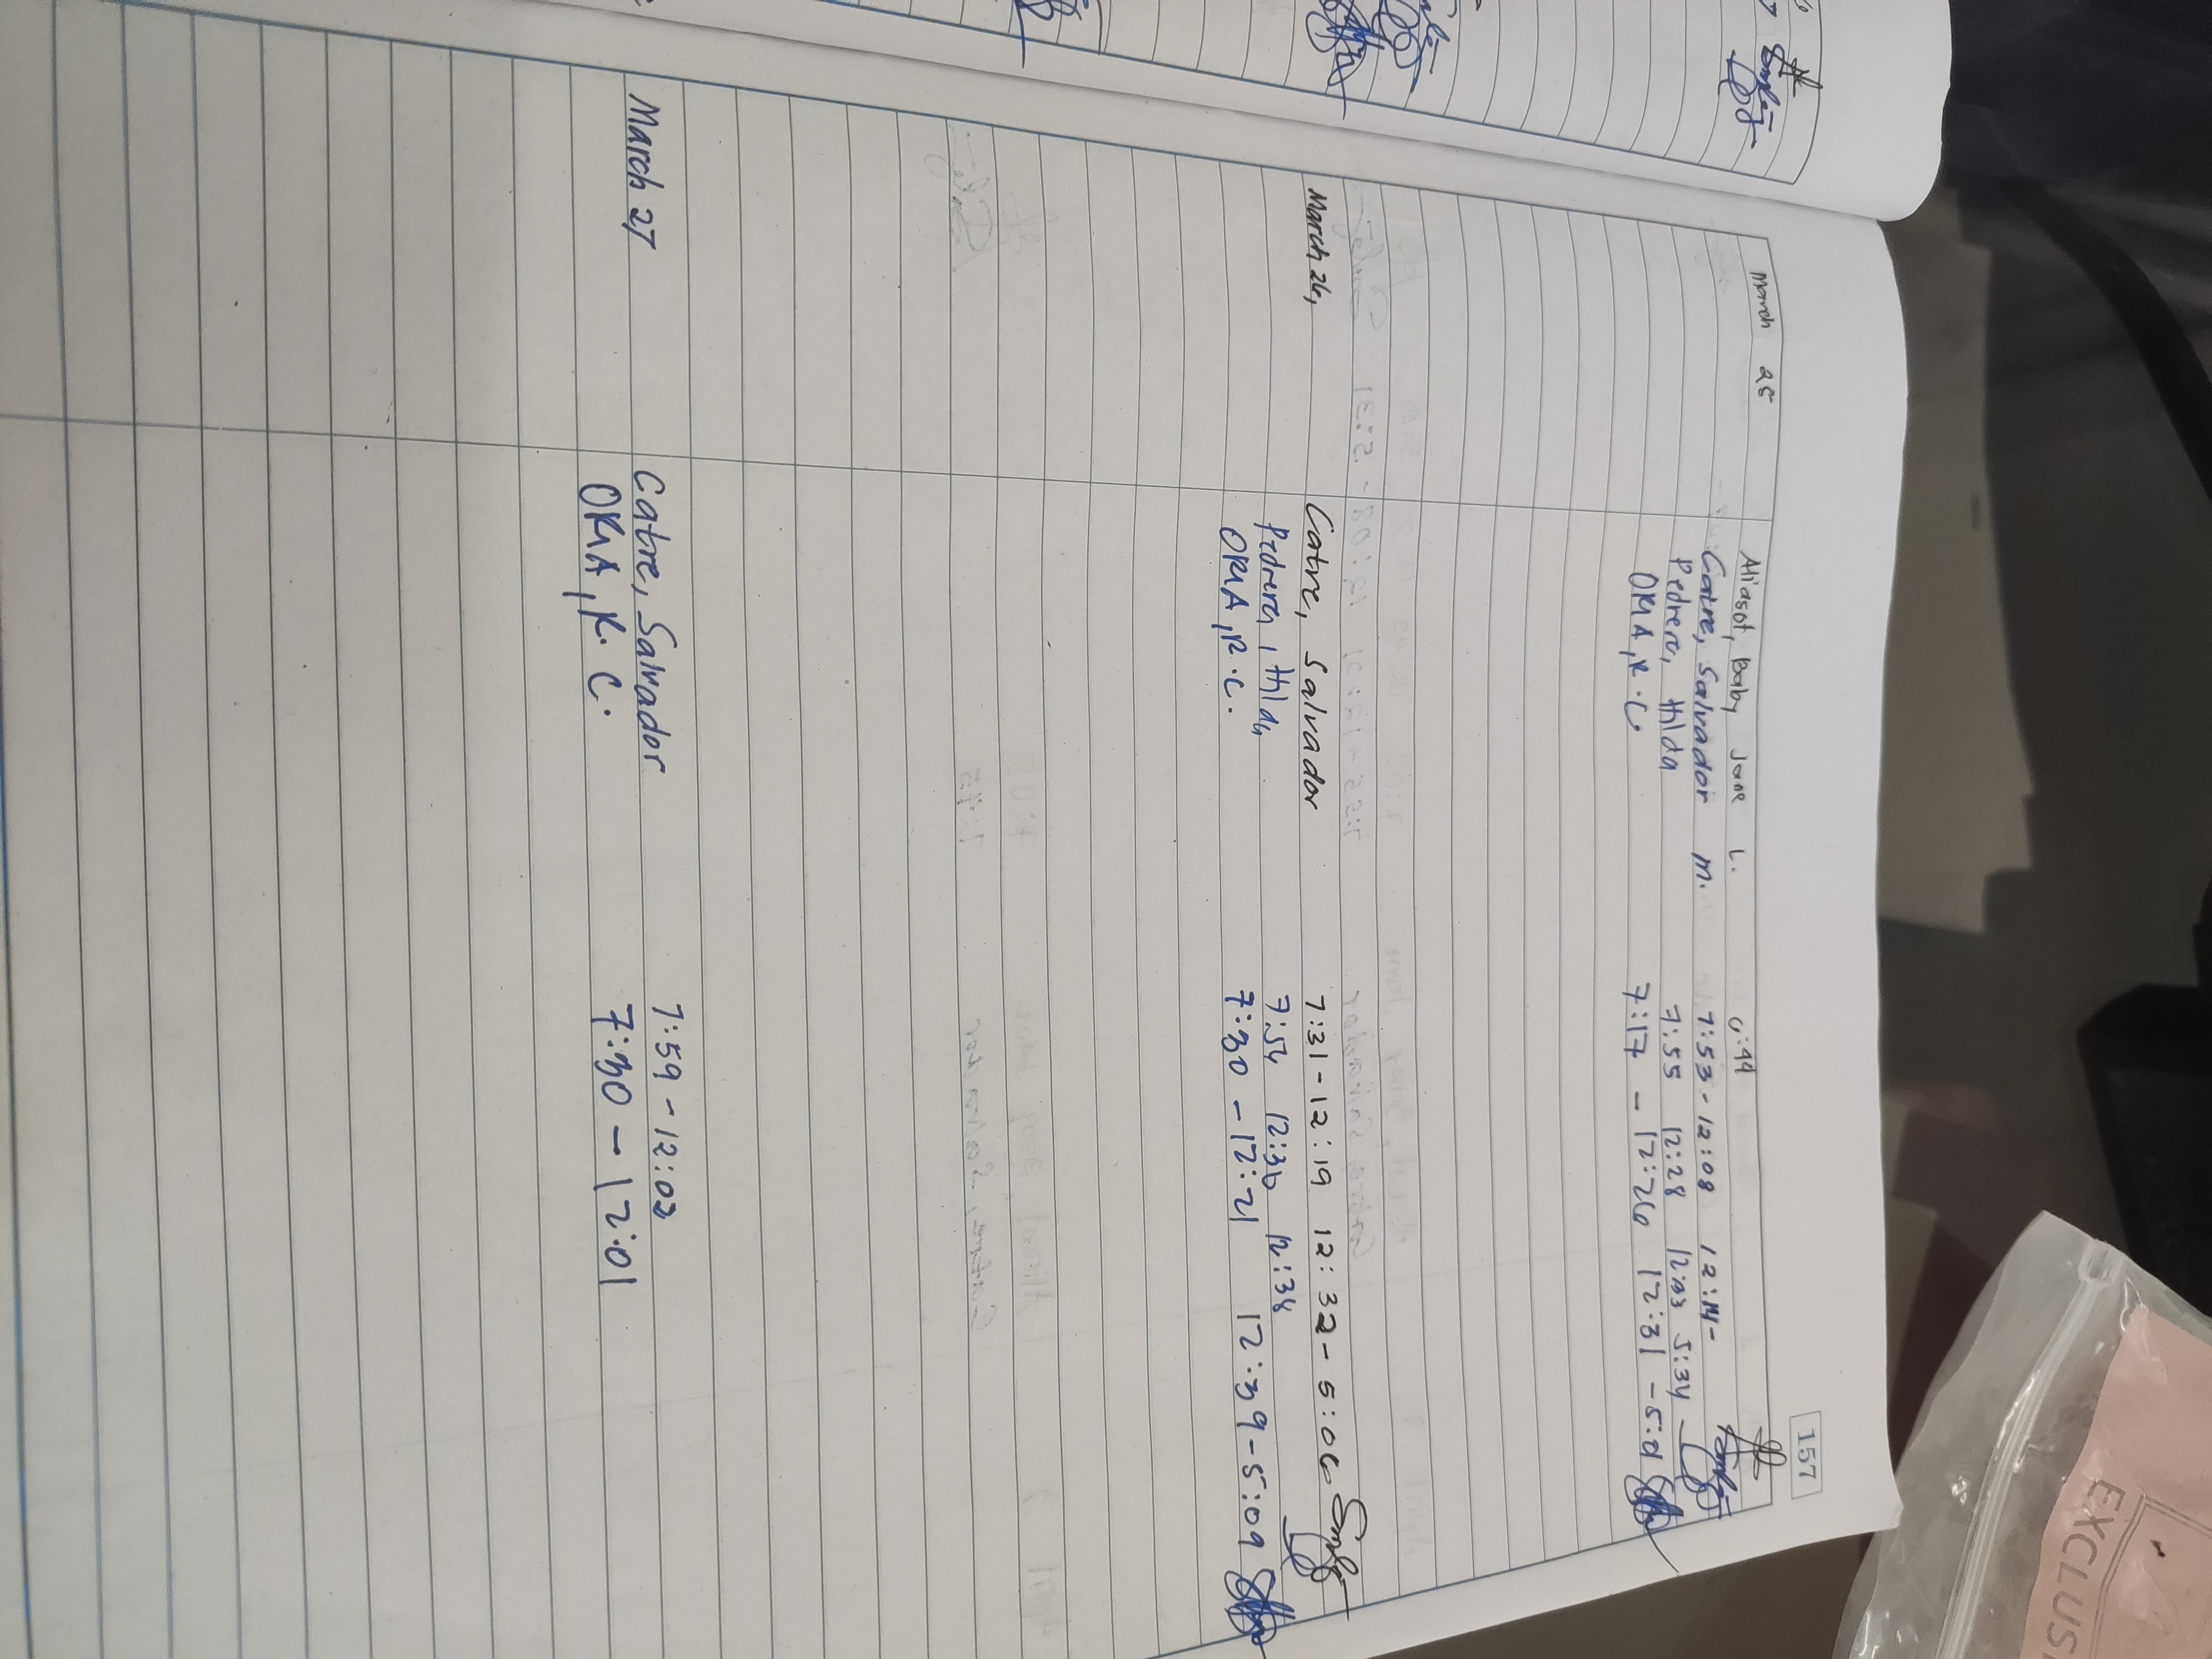 157
March 25 Miasot, Baby Jane L.
Catre, Salvador M. 7:53 - 12:08 12:14 -
Pedrera, Hilda 7:55 12:28 12:33 5:34
OKIA, K. C. 7:17 - 12:26 12:31 - 5:01
March 26, Catre, Salvador 7:31 - 12:19 12:32 - 5:06
Pedrera, Hilda 7:54 12:36 12:38
OKIA, K. C. 7:30 - 12:21 12:39 - 5:09
March 27 Catre, Salvador 7:59 - 12:02
OKIA, K. C. 7:30 - 12:01
EXCLUS